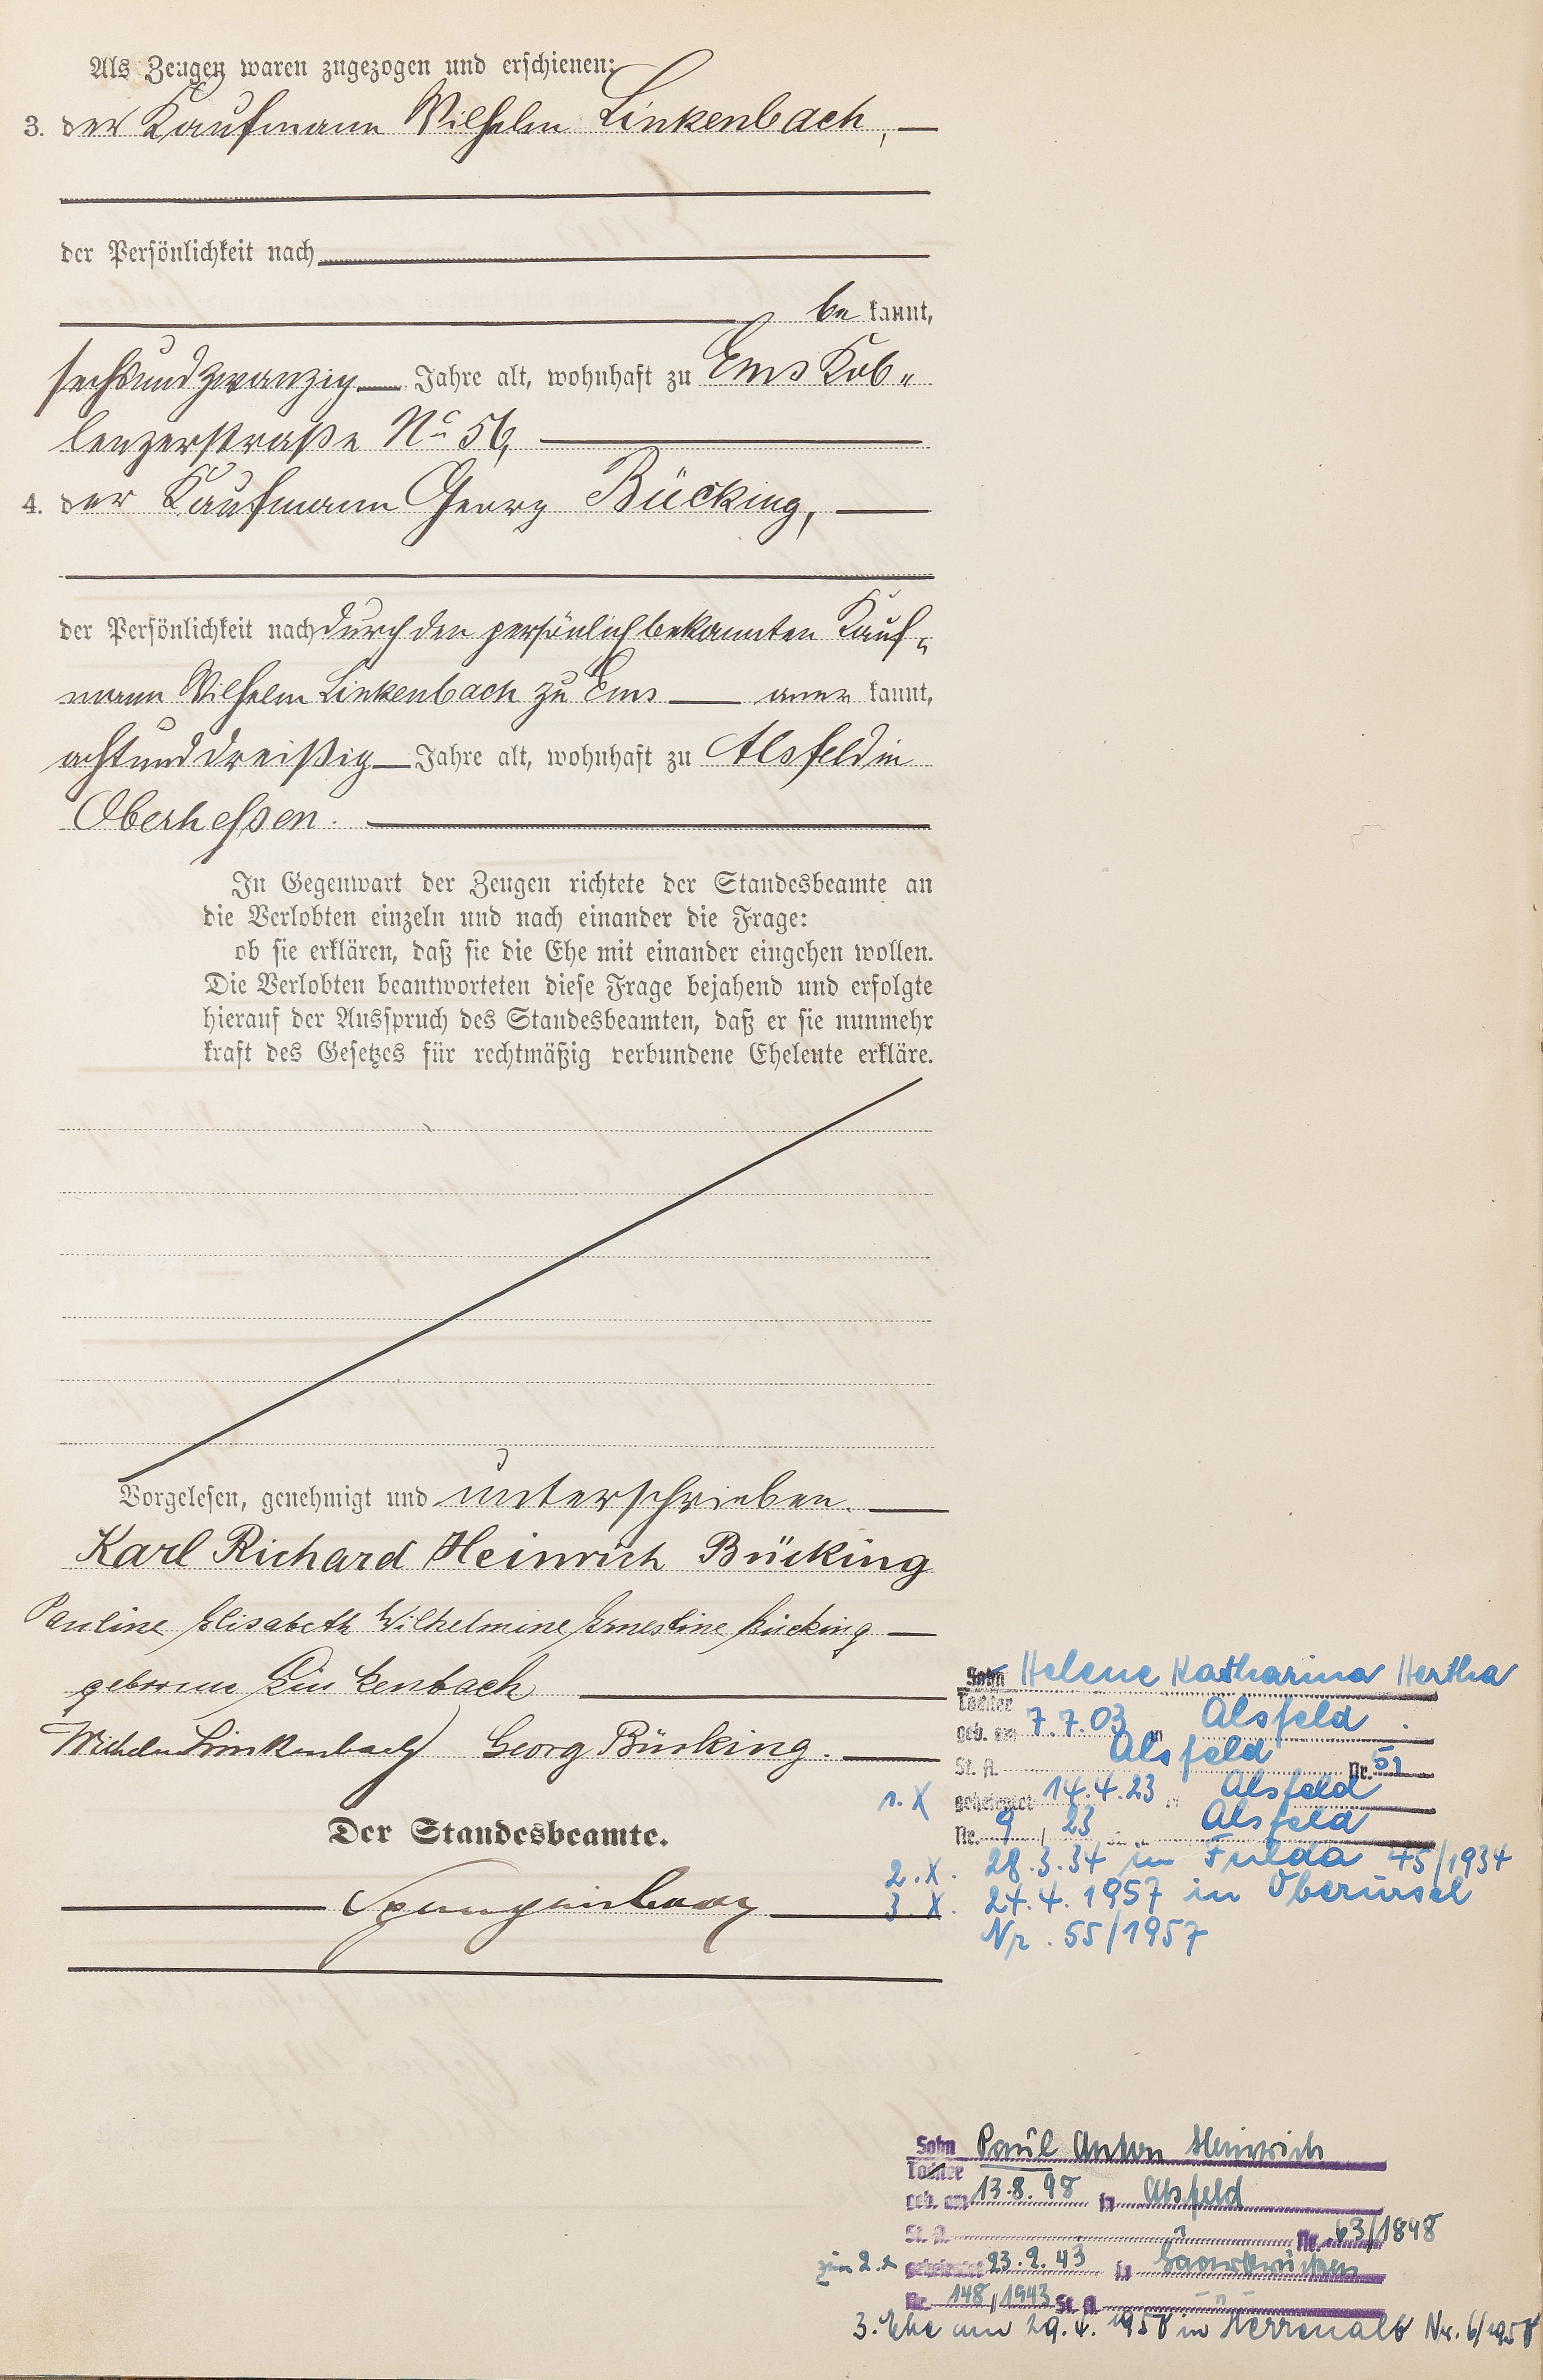 Als Zeugen waren zugezogen und erschienen:
3. der Kaufmann Wilhelm Linkenbach,
der Persönlichkeit nach
be kannt,
sechsundzwanzig Jahre alt, wohnhaft zu Ems Kob-
lenzerstraße No 56,
4. der Kaufmann Georg Bücking,
der Persönlichkeit nach durch den persönlich bekannten Kauf-
mann Wilhelm Linkenbach zu Ems aner kannt,
achtunddreißig Jahre alt, wohnhaft zu Alsfeld in
Oberhessen.
In Gegenwart der Zeugen richtete der Standesbeamte an
die Verlobten einzeln und nach einander die Frage:
ob sie erklären, daß sie die Ehe mit einander eingehen wollen.
Die Verlobten beantworteten diese Frage bejahend und erfolgte
hierauf der Ausspruch des Standesbeamten, daß er sie nunmehr
kraft des Gesetzes für rechtmäßig verbundene Eheleute erkläre.
Vorgelesen, genehmigt und unterschrieben.
Karl Richard Heinrich Bücking
Pauline Elisabeth Wilhelmine Ernestine Bücking
geborene Linkenbach
Wilhelm Linkenbach Georg Bücking.
Der Standesbeamte.
Sohn Helene Katharina Hertha
Tochter
geb. am 7.7.03 in Alsfeld
St. A. Alsfeld Nr. 51
1. X geheiratet 14.4.23 in Alsfeld
Nr. 9 / 23 Alsfeld
2. X. 28.3.34 in Fulda 45/1934
3. X. 24.4.1957 in Oberursel
Nr. 55/1957
Sohn Paul Anton Heinrich
Tochter
geb. am 13.8.98 in Alsfeld
St. A. " Nr. 63/1898
zum 2. x geheiratet 23.2.43 in Saarbrücken
Nr. 148/1943 St. A. - " -
3. Ehe am 29.4.1958 in Herrenalb Nr. 6/1958